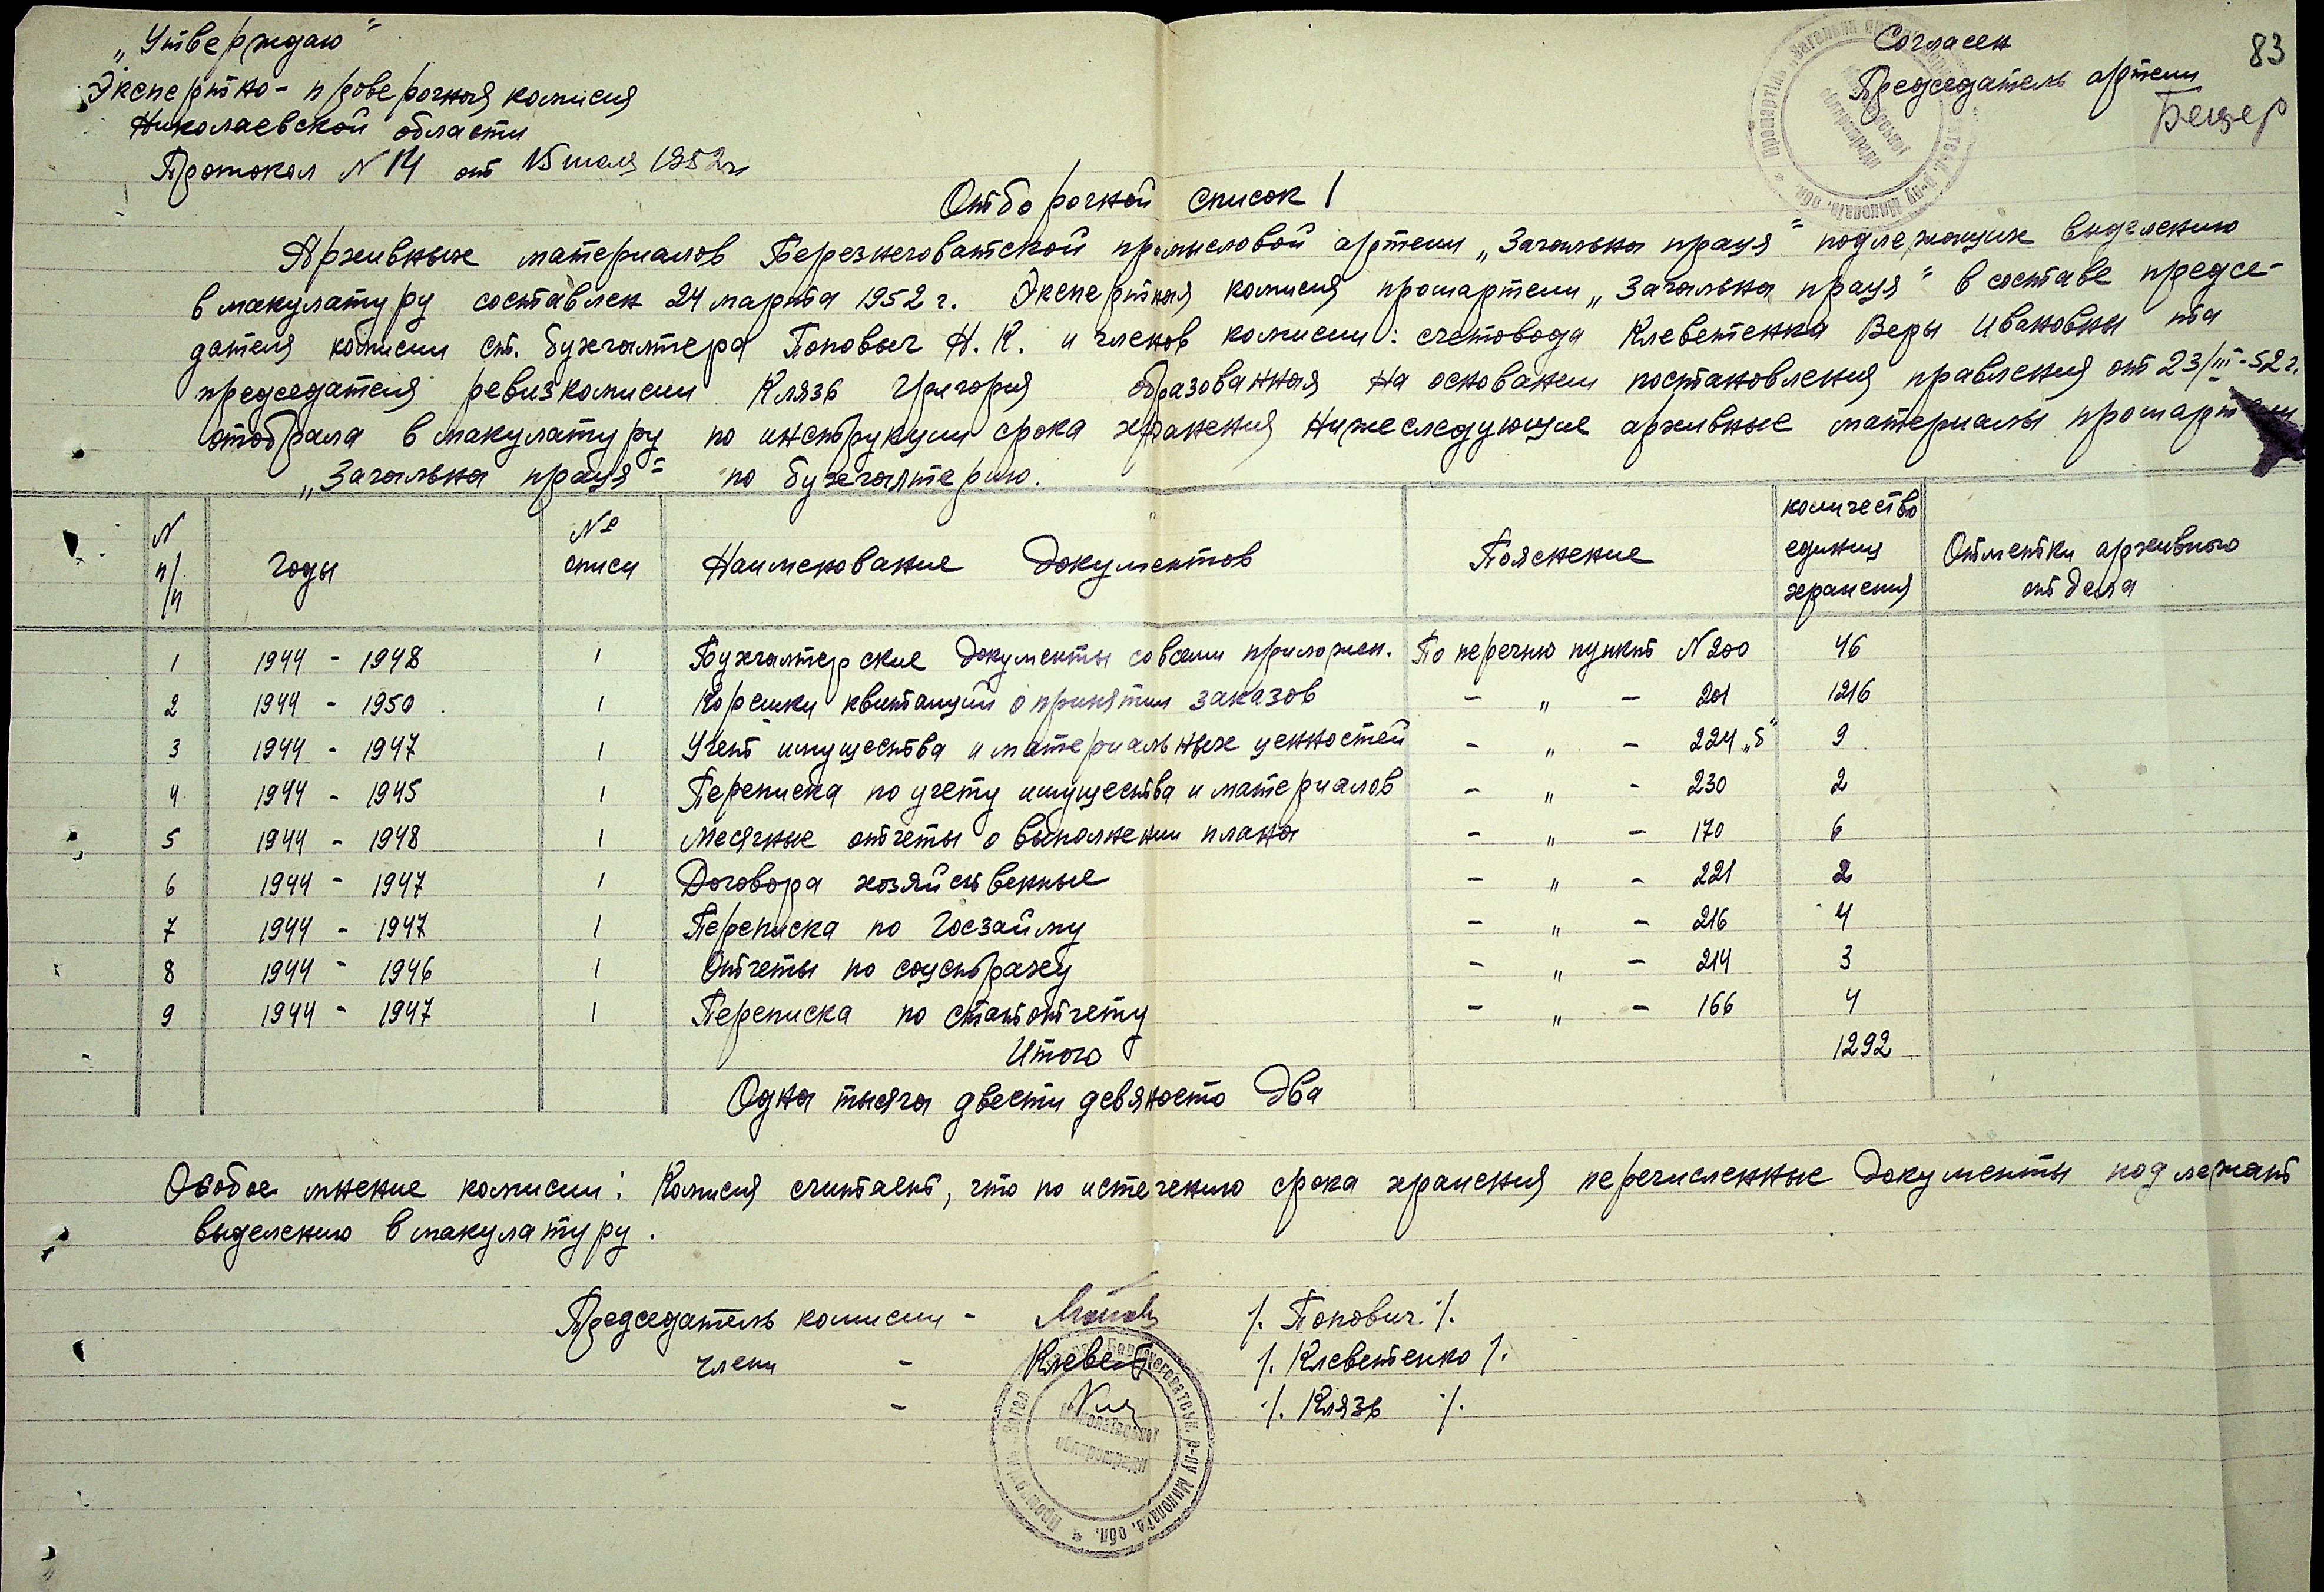 „Утверждаю"
Экспертно-проверочная комисия
Николаевской области
Протокол N 14 от 15 июля 1952 г.
Согласен
Председатель артели
83
Отборочной список 1
Архивных материалов Березнеговатской промысловой артели „Загальна праця" подлежащих выделению
в макулатуру составлен 24 марта 1952 г. Экспертная комисия промартели „Загальна праця" в составе предсе-
дателя комисии ст. бухгалтера Попович Н. К. и членов комисии: счетовода Клеветенка Веры Ивановны та
председателя ревизкомисии Клязь Григория образованная на основании постановления правления от 23/III-52 г.
отобрала в макулатуру по инструкции срока хранения нижеследующие архивные материалы промартели
„Загальна праця" по бухгалтерию.
N п/п Годы № описи Наименование Документов Пояснение количество единиц хранения Отметки архивного отдела
1 1944 - 1948 1 Бухгалтерские документы со всеми приложен. По перечню пункт N 200 46
2 1944 - 1950 1 Корешки квитанций о принятии заказов - „ - 201 1216
3 1944 - 1947 1 Учет имущества и материальных ценностей - „ - 224 „б" 9
4 1944 - 1945 1 Переписка по учету имущества и материалов - „ - 230 2
5 1944 - 1948 1 Месячные отчеты о выполнении плана - „ - 170 6
6 1944 - 1947 1 Договора хозяйственные - „ - 221 2
7 1944 - 1947 1 Переписка по Госзайму - „ - 216 4
8 1944 - 1946 1 Отчеты по соцстраху - „ - 214 3
9 1944 - 1947 1 Переписка по статотчету - „ - 166 4
Итого 1292
Одна тысяча двести девяносто два
Особое мнение комисии: Комисия считает, что по истечению срока хранения перечисленные документы подлежат
выделению в макулатуру.
Председатель комисии - /. Попович. /.
члены - Клевет /. Клеветенко /.
- Кля /. Клязь /.
Березнегуватськ. р-ну Миколаїв. обл.
Миколаївської